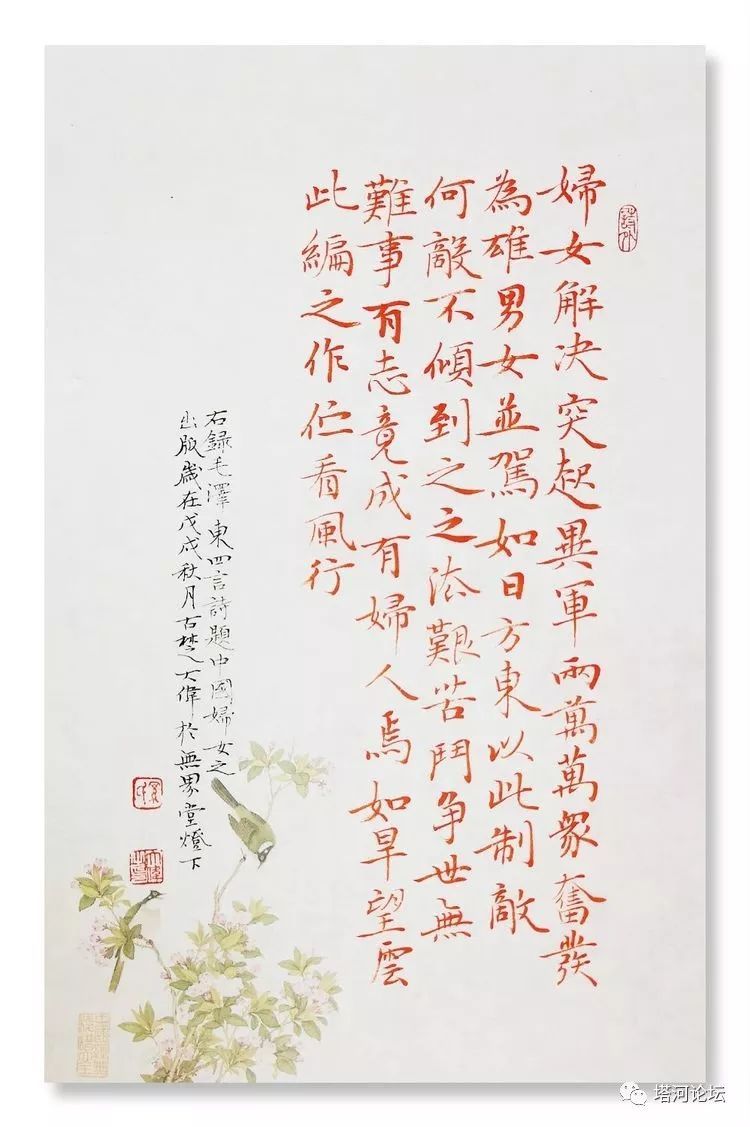 婦女解决突起異軍兩萬萬衆奮發
為雄男女並駕如日方東以此制敵
何敵不傾到之之法艱苦鬥争世無
難事有志竟成有婦人焉如旱望雲
此編之作伫看風行
右録毛澤東四言詩題中國婦女之
出版歲在戊戌秋月古楚人大偉於無界堂燈下
塔河论坛